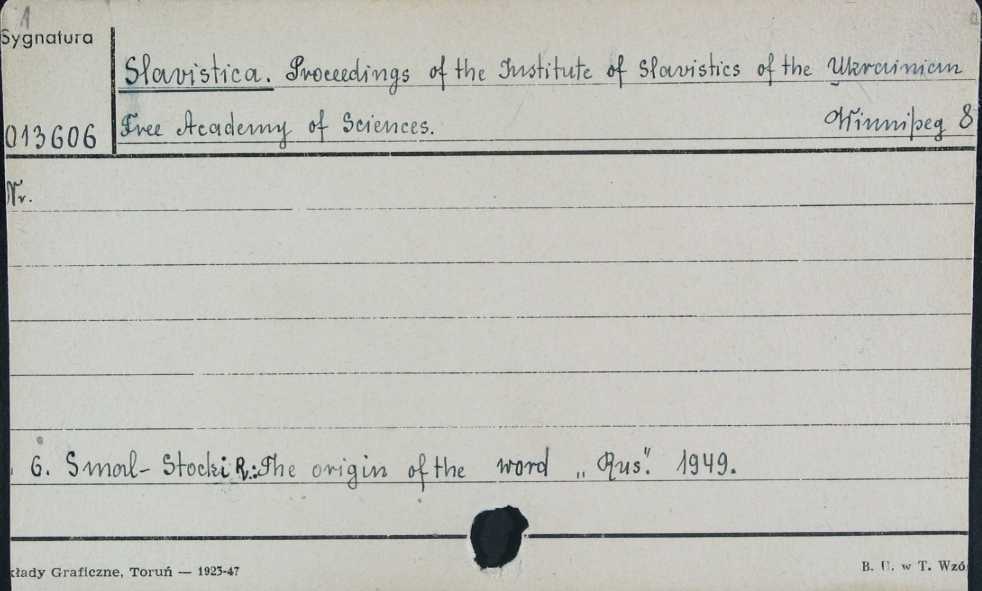 1
Sygnatura
Slavistica. Proceedings of the Institute of Slavistics of the Ukrainian
013606 Free Academy of Sciences. Winnipeg 8
Nr.
6. Smal-Stocki R.: The origin of the word „Rus". 1949.
kłady Graficzne, Toruń — 1923-47
B. U. w T. Wzó